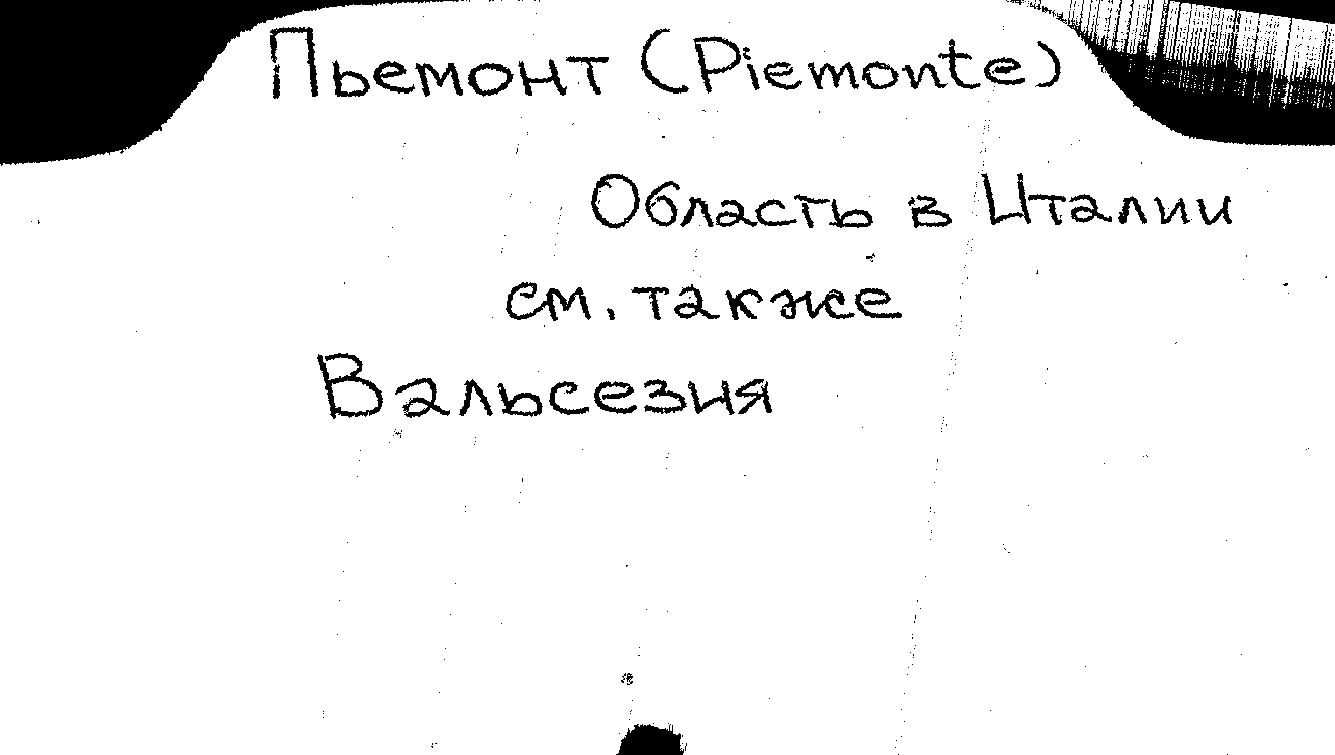 Пьемонт (Piemonte)
Область в Италии
см. также
Вальсезия